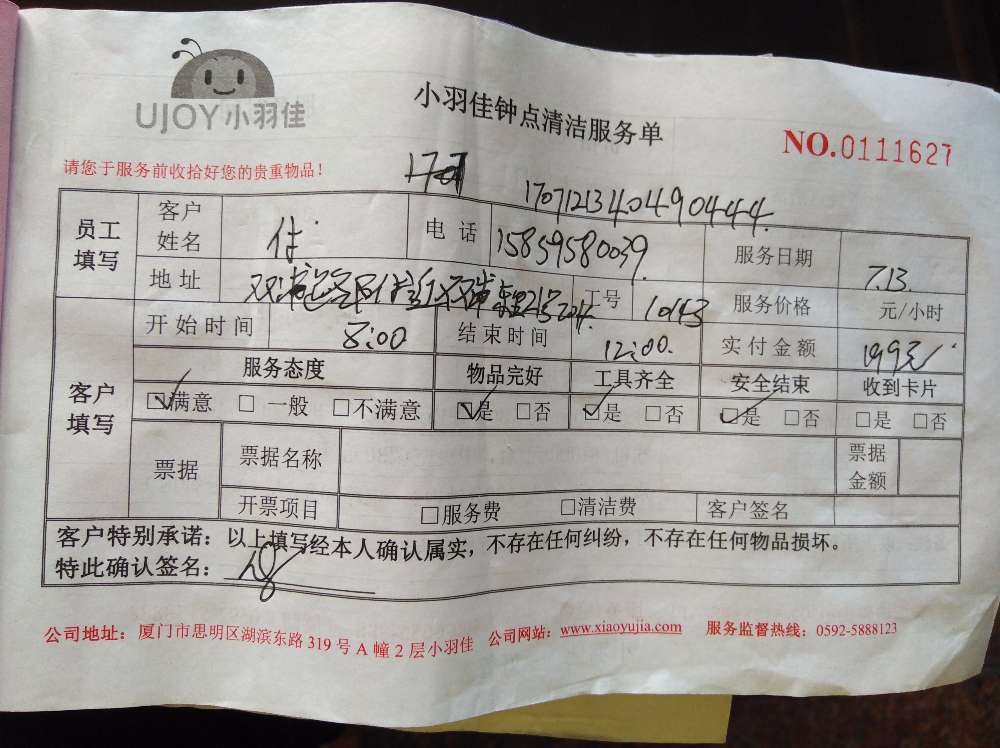 UJOY小羽佳
小羽佳钟点清洁服务单
NO.0111627
请您于服务前收拾好您的贵重物品！
1707121340490444
员工填写
客户姓名 电话 15859580039 服务日期 7.13.
地址 工号 10143 服务价格 元/小时
开始时间 8:00 结束时间 12:00. 实付金额 199元
客户填写
服务态度 物品完好 工具齐全 安全结束 收到卡片
☑满意 □一般 □不满意 ☑是 □否 ☑是 □否 ☑是 □否 □是 □否
票据 票据名称 票据金额
开票项目 □服务费 □清洁费 客户签名
客户特别承诺：以上填写经本人确认属实，不存在任何纠纷，不存在任何物品损坏。
特此确认签名：
公司地址：厦门市思明区湖滨东路319号A幢2层小羽佳 公司网站：www.xiaoyujia.com 服务监督热线：0592-5888123